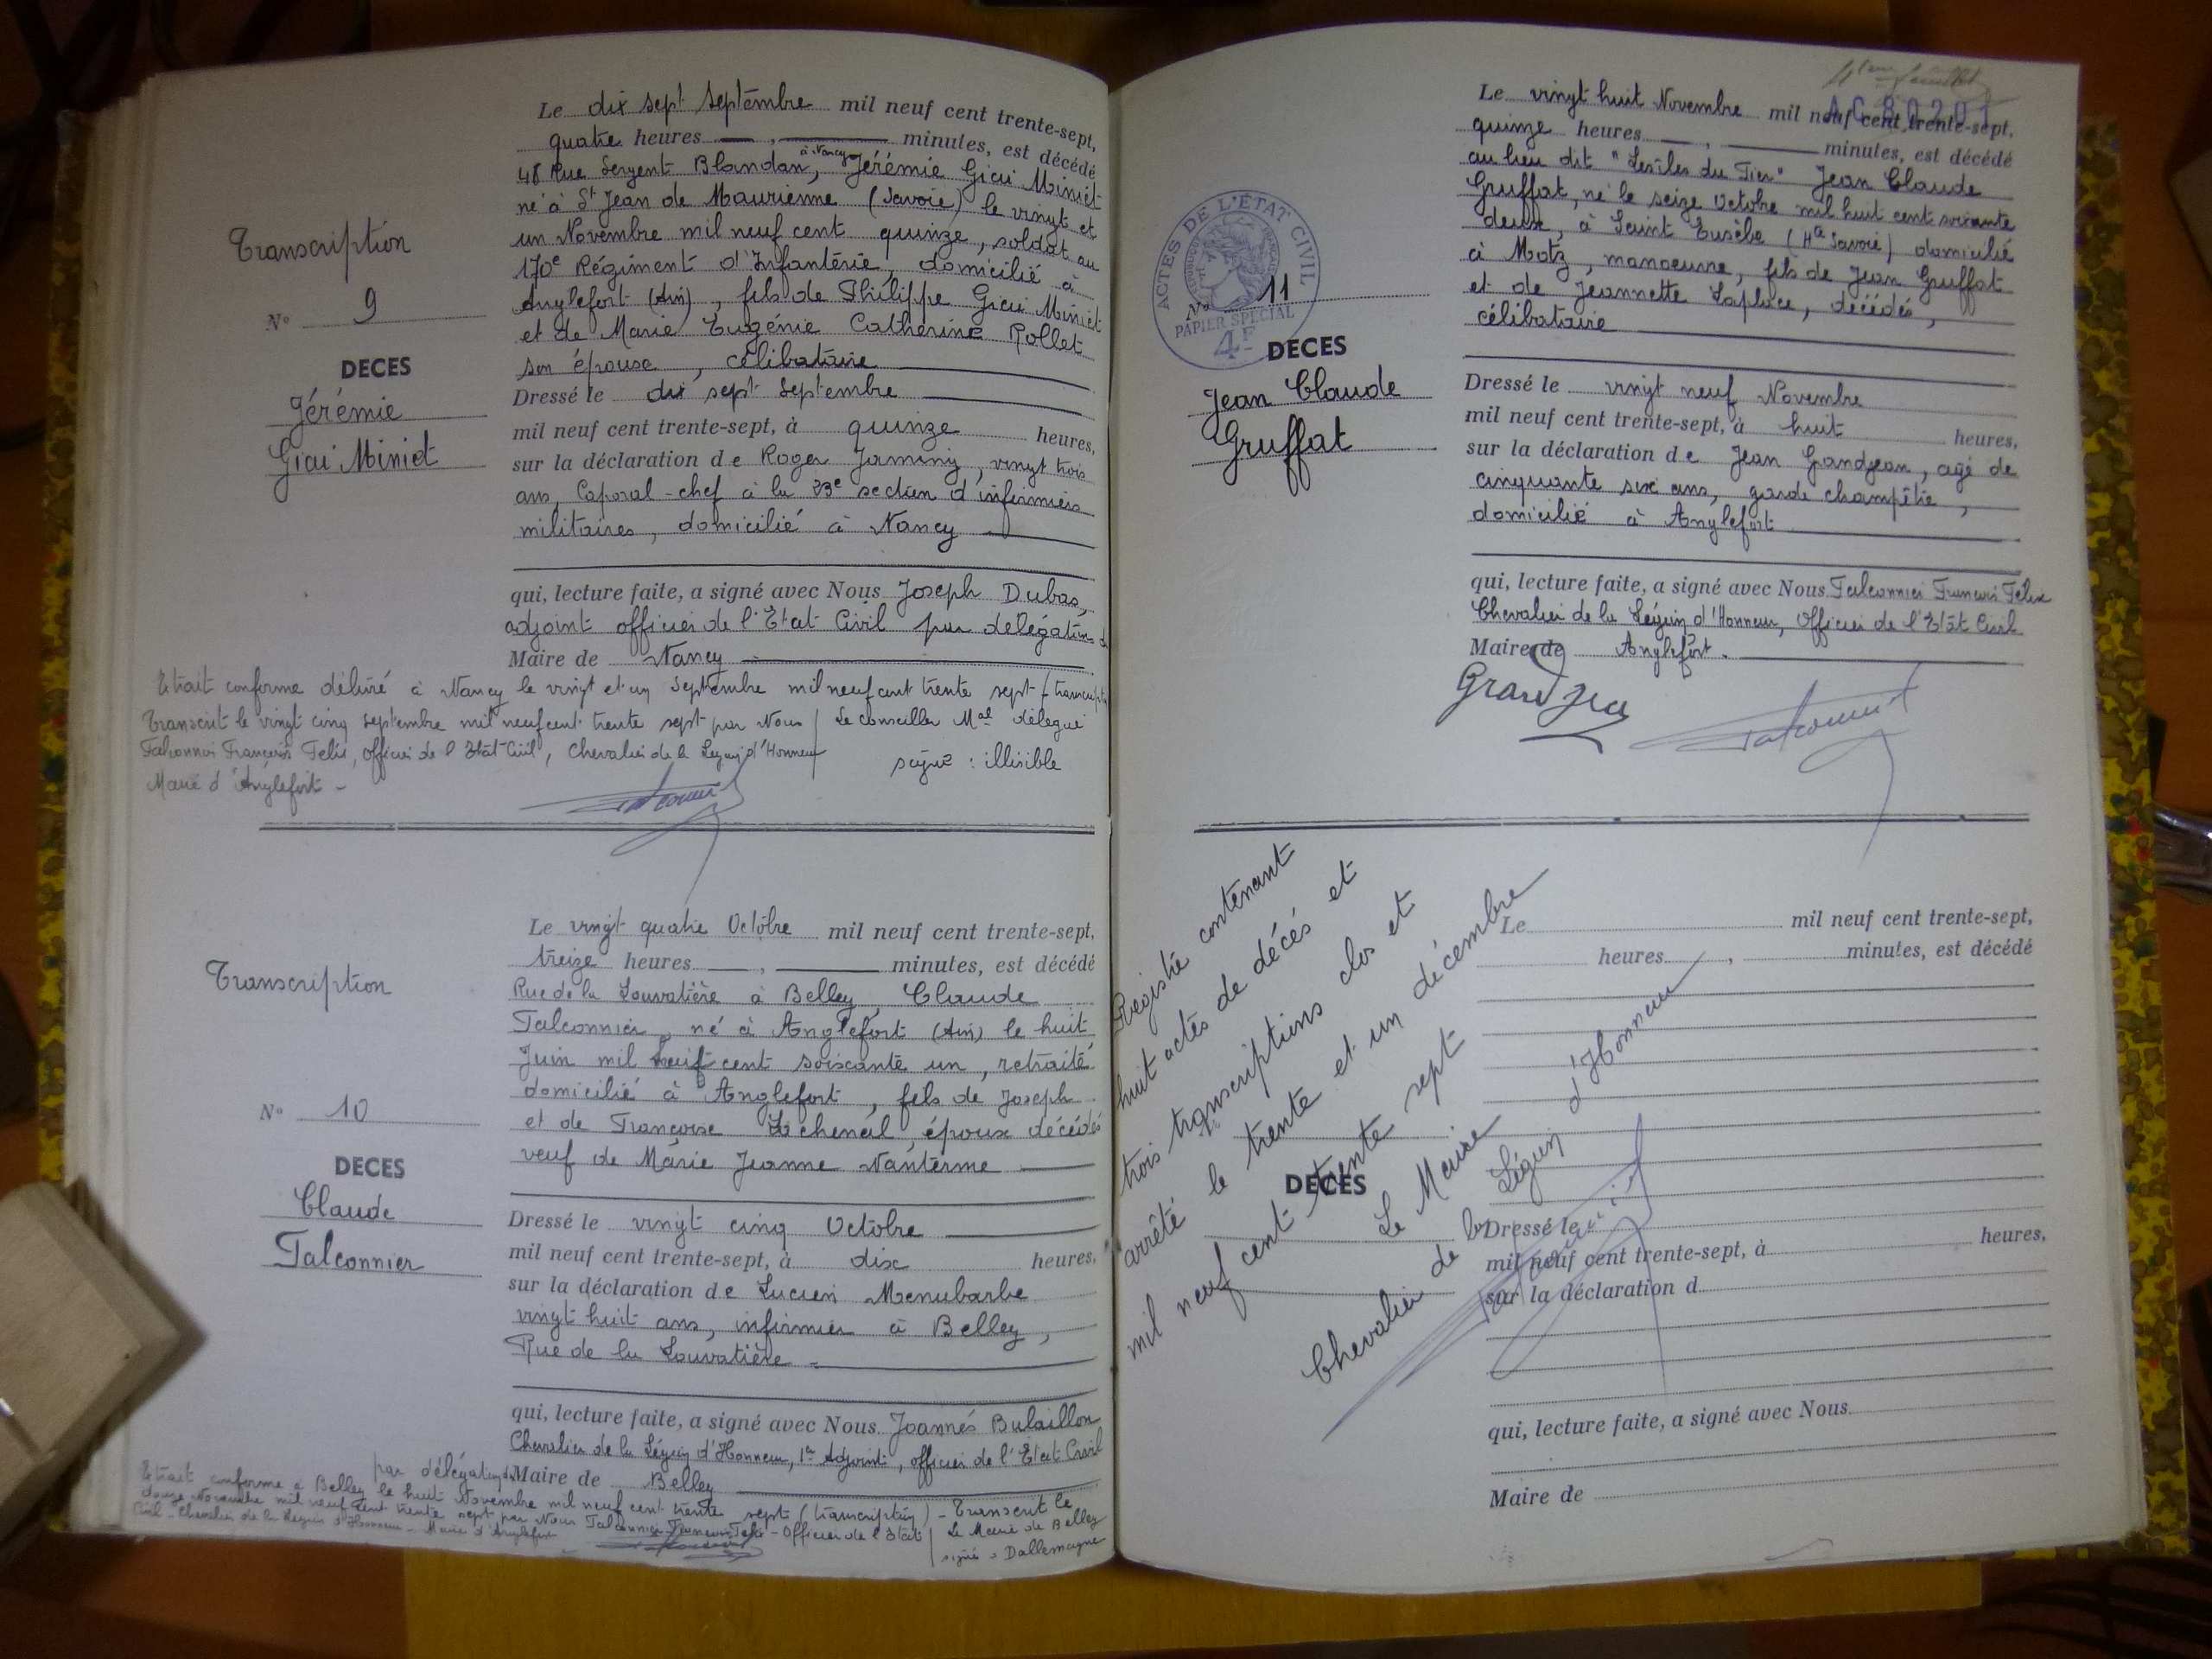 Transcription
N° 9
DECES
Jérémie
Giai Miniet
Le dix sept Septembre mil neuf cent trente-sept,
quatre heures , minutes, est décédé
48 Rue Sergent Blandan, à Nancy Jérémie Giai Miniet
né à St Jean de Maurienne (Savoie) le vingt et
un Novembre mil neuf cent quinze, soldat au
170e Régiment d'Infanterie, domicilié à
Anglefort (Ain), fils de Philippe Giai Miniet
et de Marie Eugénie Catherine Rollet
son épouse, célibataire
Dressé le dix sept Septembre
mil neuf cent trente-sept, à quinze heures,
sur la déclaration de Roger Jaminy, vingt trois
ans, Caporal-chef à la 23e section d'infirmiers
militaires, domicilié à Nancy
qui, lecture faite, a signé avec Nous Joseph Dubas,
adjoint officier de l'Etat Civil par délégation
Maire de Nancy
Extrait conforme délivré à Nancy le vingt et un Septembre mil neuf cent trente sept
Transcrit le vingt cinq Septembre mil neuf cent trente sept par Nous
Falconnier François Félix, Officier de l'Etat-Civil, Chevalier de la Légion d'Honneur
Maire d'Anglefort -
Le Conseiller Mal délégué
signé : illisible
Transcription
N° 10
DECES
Claude
Falconnier
Le vingt quatre Octobre mil neuf cent trente-sept,
treize heures , minutes, est décédé
Rue de la Louvatière à Belley, Claude
Falconnier, né à Anglefort (Ain) le huit
Juin mil huit cent soixante un, retraité
domicilié à Anglefort, fils de Joseph
et de Françoise Lochenal, époux décédés
veuf de Marie Jeanne Nanterme
Dressé le vingt cinq Octobre
mil neuf cent trente-sept, à dix heures,
sur la déclaration de Lucien Menubarbe
vingt huit ans, infirmier à Belley,
Rue de la Louvatière -
qui, lecture faite, a signé avec Nous Joannés Bulaillon
Chevalier de la Légion d'Honneur, 1er Adjoint, officier de l'Etat Civil
par délégation du Maire de Belley
Extrait conforme à Belley le huit Novembre mil neuf cent trente sept (transcription) - Transcrit le
douze Novembre mil neuf cent trente sept par Nous Falconnier François Félix - Officier de l'Etat
Civil - Chevalier de la Légion d'Honneur - Maire d'Anglefort
Le Maire de Belley
signé : Dallemagne
AC 80201
ACTES DE L'ÉTAT CIVIL
PAPIER SPÉCIAL
4F
N° 11
DECES
Jean Claude
Gruffat
Le vingt huit Novembre mil neuf cent trente-sept,
quinze heures , minutes, est décédé
au lieu dit "Les îles du Fier" Jean Claude
Gruffat, né le seize Octobre mil huit cent soixante
deux, à Saint Eusèbe (Hte Savoie) domicilié
à Motz, manoeuvre, fils de Jean Gruffat
et de Jeannette Laplace, décédés,
célibataire
Dressé le vingt neuf Novembre
mil neuf cent trente-sept, à huit heures,
sur la déclaration de Jean Grandjean, agé de
cinquante six ans, garde champêtre,
domicilié à Anglefort
qui, lecture faite, a signé avec Nous Falconnier François Félix
Chevalier de la Légion d'Honneur, Officier de l'Etat Civil
Maire de Anglefort.
Grandjean
Falconnier
Registre contenant
huit actes de décés et
trois transcriptions clos et
arrêté le trente et un décembre
mil neuf cent trente sept
Le Maire
Chevalier de la Légion d'Honneur
DECES
Le mil neuf cent trente-sept,
heures , minutes, est décédé
Dressé le
mil neuf cent trente-sept, à heures,
sur la déclaration d
qui, lecture faite, a signé avec Nous
Maire de